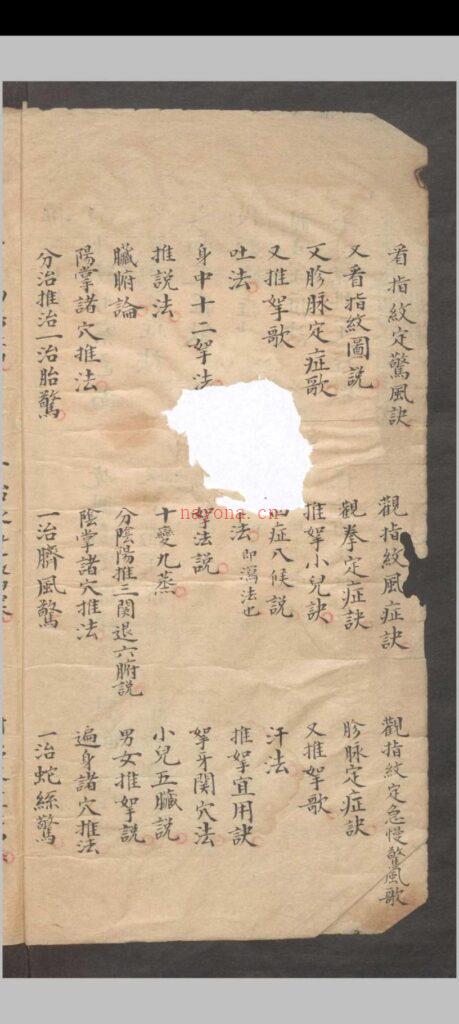 看指紋定驚風訣 觀指紋風症訣 觀指紋定急慢驚風歌
又看指紋圖説 觀拳定症訣 胗脉定症訣
又胗脉定症歌 推拏小兒訣 又推拏歌
又推拏歌 症八候説 汗法
吐法 法即瀉法也 推拏宜用訣
身中十二拏法 拏法説 拏牙関穴法
推説法 十變九蒸 小兒五臟説
臟腑論 分陰陽推三関退六腑説 男女推拏説
陽掌諸穴推法 陰掌諸穴推法 遍身諸穴推法
分治推治一治胎驚 一治臍風驚 一治蛇絲驚
nayona.cn